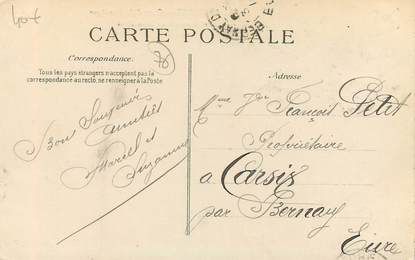 40€
CARTE POSTALE
Correspondance
Tous les pays étrangers n'acceptent pas la
correspondance au recto, se renseigner à la Poste
Adresse
Bon Souvenir
amitiés
Marcel et
Suzanne
Mme Vve François Petit
Propriétaire
a Carsix
par Bernay
Eure